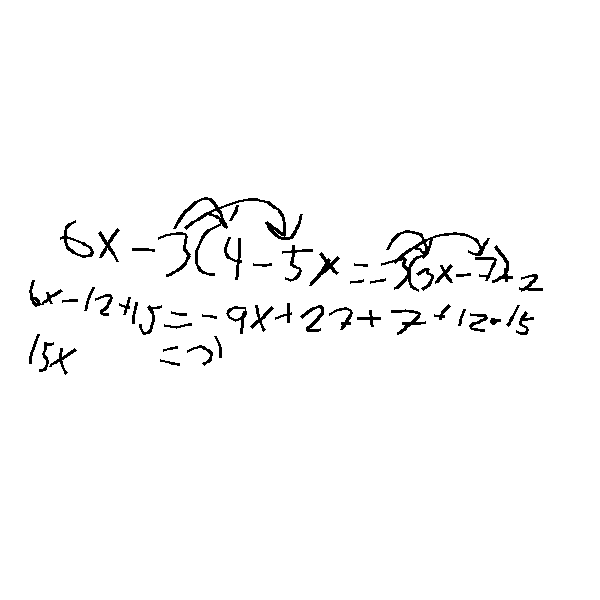 6x-3(4-5x=-3(3x-7)+2
6x-12+15=-9x+27+7+12-15
15x =21